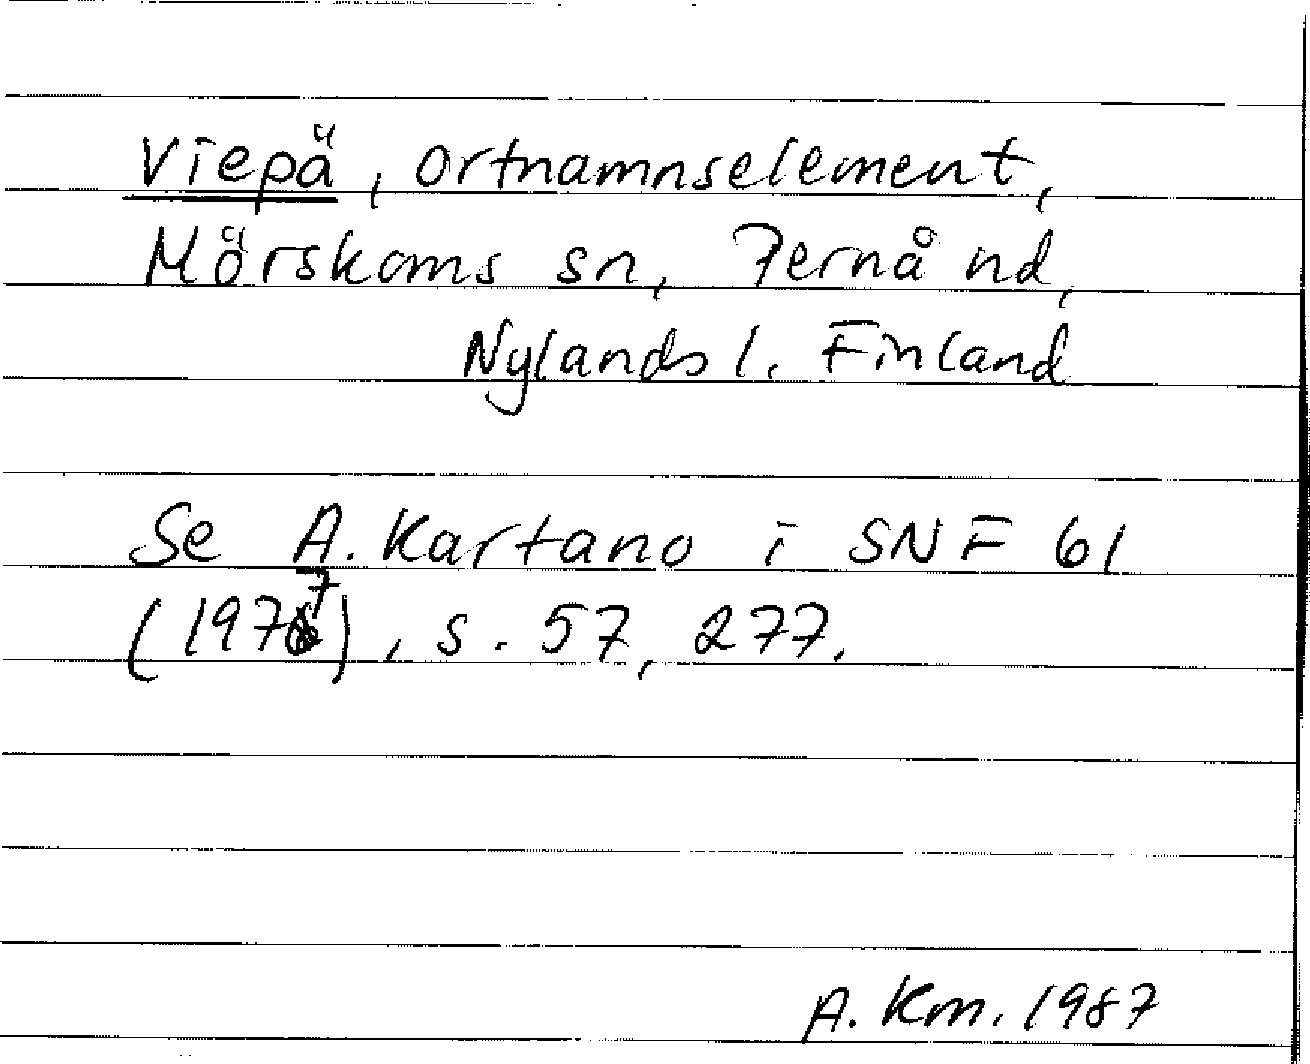 Viepä, ortnamnselement,
Mörskoms sn, Pernå nd,
Nylands l. Finland
Se A. Kartano i SNF 61
(1977), s. 57, 277.
A. Km. 1987